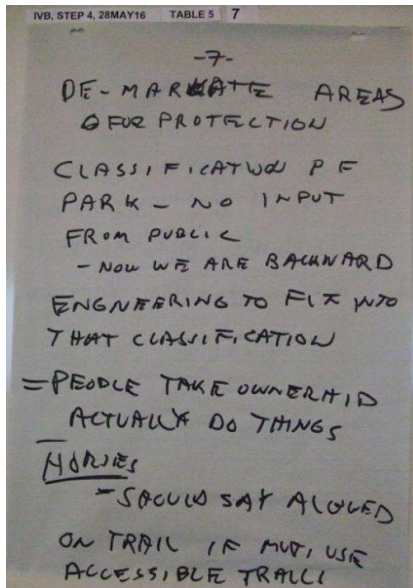 IVB, STEP 4, 28MAY16 TABLE 5 7
-7-
DE-MARKATE AREAS
FOR PROTECTION
CLASSIFICATION OF
PARK - NO INPUT
FROM PUBLIC
- NOW WE ARE BACKWARD
ENGNEERING TO FIT INTO
THAT CLASSIFICATION
= PEOPLE TAKE OWNERHIP
ACTUALLY DO THINGS
HORSES
- SHOULD SAY ALOWED
ON TRAIL IF MUTI USE
ACCESSIBLE TRAIL